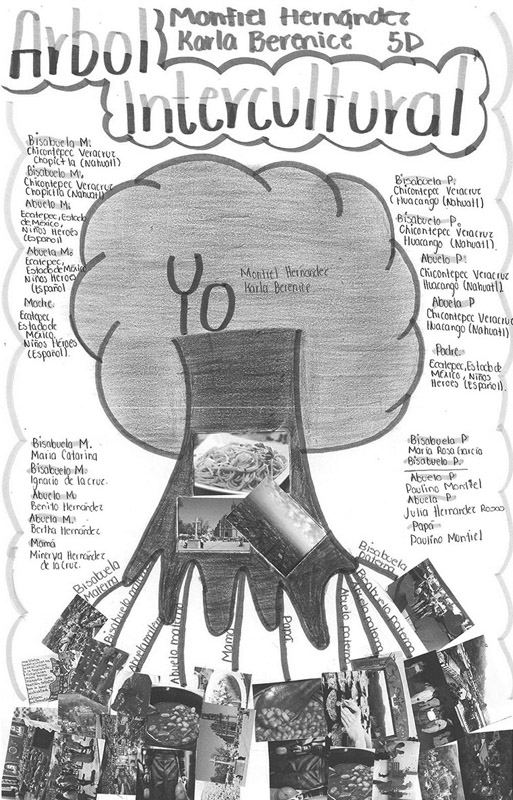 Montiel Hernández
Karla Berenice 5D
Arbol
Intercultural
Bisabuela M.
Chicontepec Veracruz
Chapictla (Nahuatl)
Bisabuelo M.
Chicontepec Veracruz
Chapictla (Nahuatl)
Abuelo M.
Ecatepec, Estado
de México,
Niños Héroes
(Español)
Abuela M.
Ecatepec,
Estado de México
Niños Héroes
(Español
Madre.
Ecatepec,
Estado de
México.
Niños Héroes
(Español).
Bisabuela P.
Chicontepec Veracruz
(Huacango (Nahuatl)
Bisabuelo P.
Chicontepec Veracruz
Huacango (Nahuatl).
Abuelo P.
Chicontepec Veracruz
Huacango (Nahuatl).
Abuela P
Chicontepec Veracruz
Huacango (Nahuatl)
Padre.
Ecatepec, Estado de
México, Niños
Héroes (Español).
Yo
Montiel Hernández
Karla Berenice
Bisabuela M.
Maria Catarina
Bisabuelo M.
Ignacio de la cruz.
Abuelo M.
Benito Hernández
Abuela M.
Bertha Hernández
Mamá
Minerva Hernández
de la Cruz.
Bisabuela P
María Rosa García
Bisabuelo P.
Abuelo P
Paulino Montiel
Abuela P.
Julia Hernández
Papá
Paulino Montiel
Bisabuela
Materna
Bisabuelo materno
Abuela materna
Abuelo materno
Mamá
Papá
Abuelo paterno
Abuela paterna
Bisabuelo paterno
Bisabuela
paterna